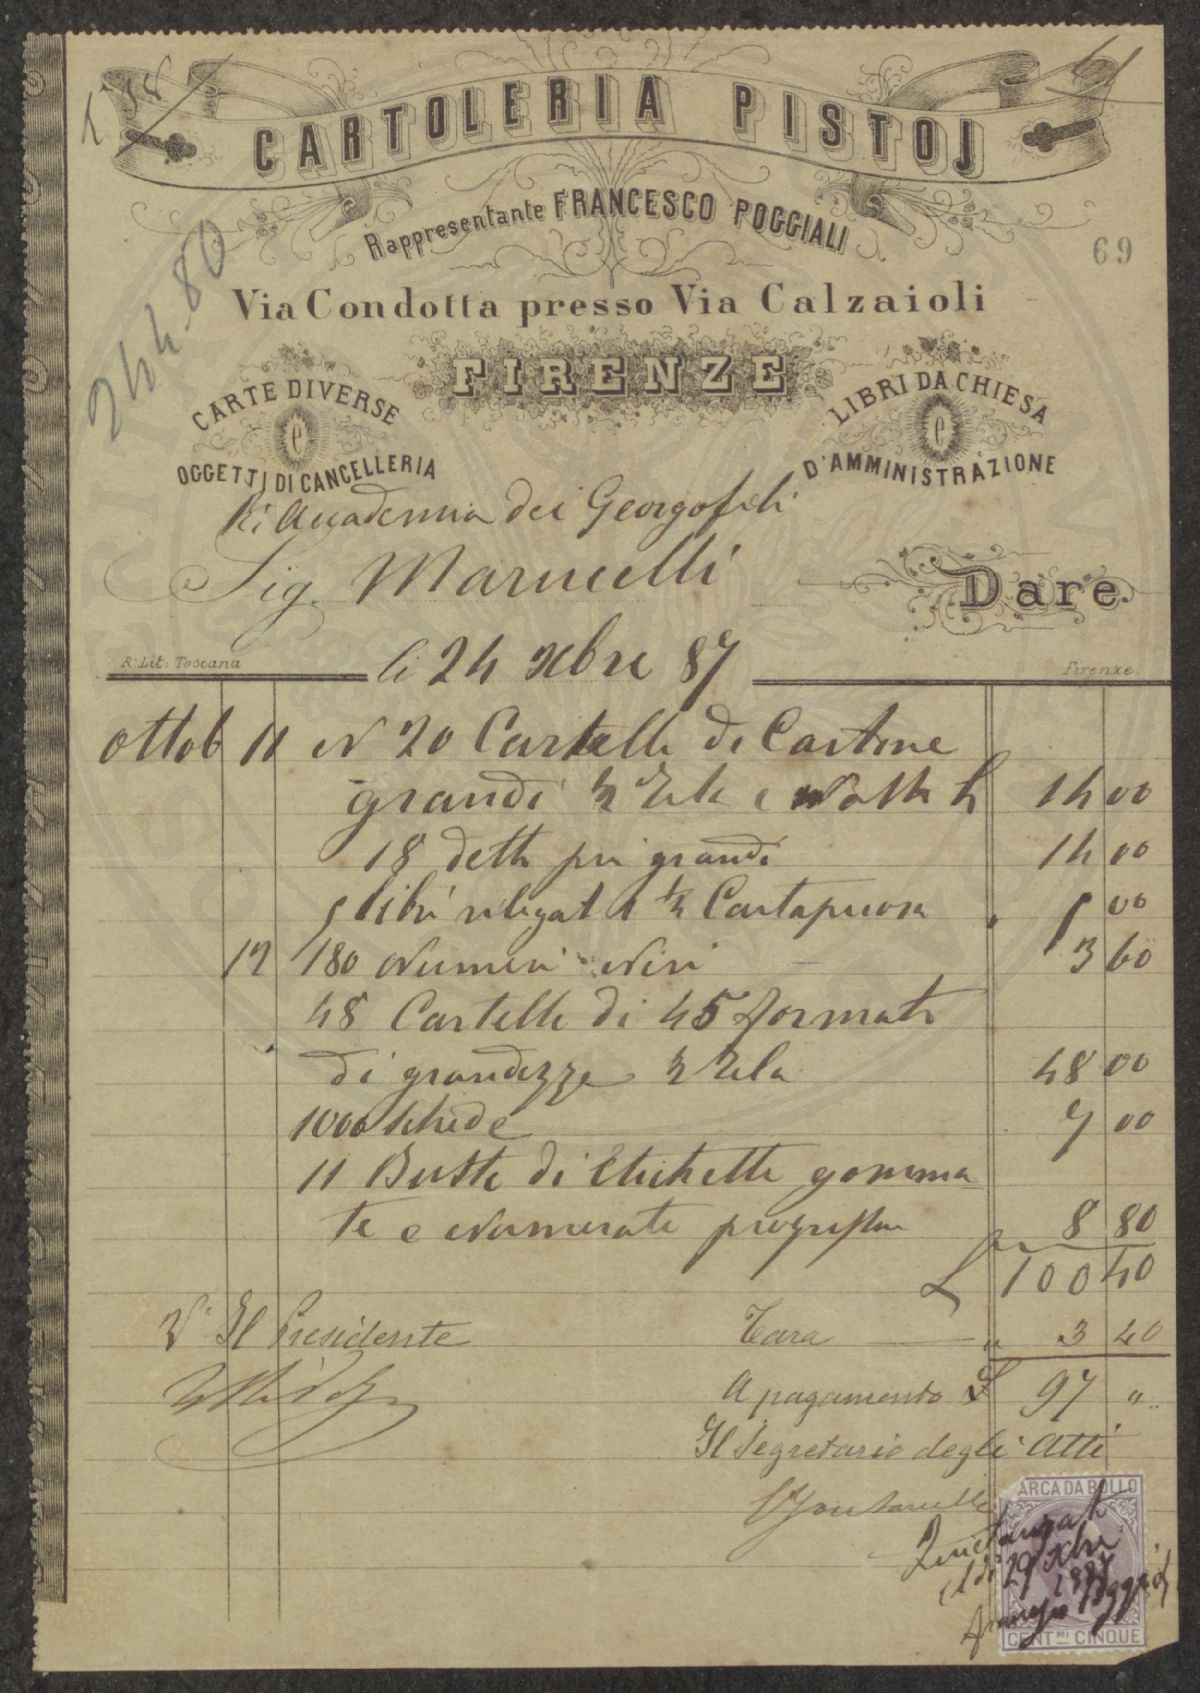 CARTOLERIA PISTOJ
Rappresentante FRANCESCO POGGIALI
69
244-80
Via Condotta presso Via Calzaioli
FIRENZE
CARTE DIVERSE
e
OGGETTI DI CANCELLERIA
LIBRI DA CHIESA
e
D'AMMINISTRAZIONE
Rì Accademia dei Georgofili
Sig. Marucelli
Dare
R. Lit. Toscana
Firenze.
li 24 Xbre 87
Ottob 11 N 20 Cartelle di Cartone
grandi ½ Tela e 14 00
18 dette più grandi 14 00
5 libri rilegati ½ Cartapecora " 5 00
12 180 Numeri Neri 3 60
48 Cartelle di 45 formati
di grandezze ½ Tela 48 00
1000 Schede 7 00
11 Buste di Etichette gomma
te e Numerate 8 80
L 100 40
Vº Il Presidente
Tara " 3 40
A pagamento £ 97 "
Il Segretario degli Atti
MARCA DA BOLLO
Quietanzato
il dì 29 Xbre
1887
Francesco Poggiali
CENT.MI CINQUE